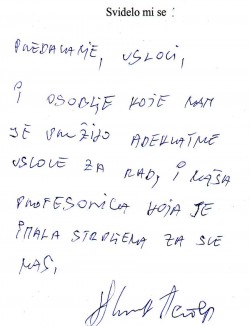 Svidelo mi se :
PREDAVANJE, USLOVI,
I OSOBLJE KOJE NAM
JE PRUŽILO ADEKVATNE
USLOVE ZA RAD, I NAŠA
PROFESORICA KOJA JE
IMALA STRPLJENJA ZA SVE
NAS,